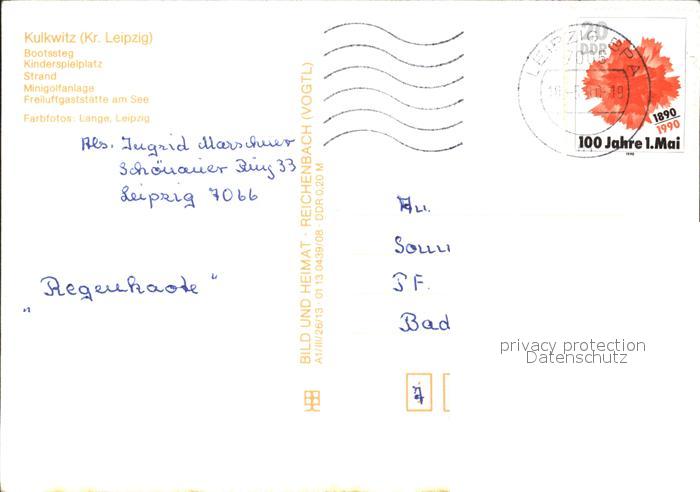 Kulkwitz (Kr. Leipzig)
Bootssteg
Kinderspielplatz
Strand
Minigolfanlage
Freiluftgaststätte am See
Farbfotos: Lange, Leipzig
Abs. Ingrid Marschner
Schönauer Ring 33
Leipzig 7066
"Regenkarte"
BILD UND HEIMAT · REICHENBACH (VOGTL)
A1/III/26/13 · 01 13 0439/08 · DDR 0,20 M
LEIPZIG BPA
7005
20
DDR
1890
1990
100 Jahre 1.Mai
1990
An
Sonn
PF.
Bad
privacy protection
Datenschutz